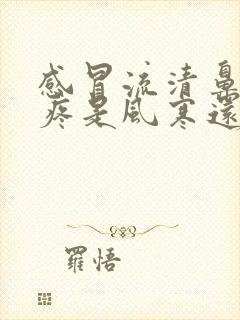 感冒流清鼻
疼是風寒還
羅悟